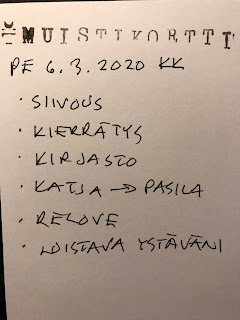 MUISTIKORTTI
PE 6.3.2020 KK
· SIIVOUS
· KIERRÄTYS
· KIRJASTO
· KATJA → PASILA
· RELOVE
· LOISTAVA YSTÄVÄNI